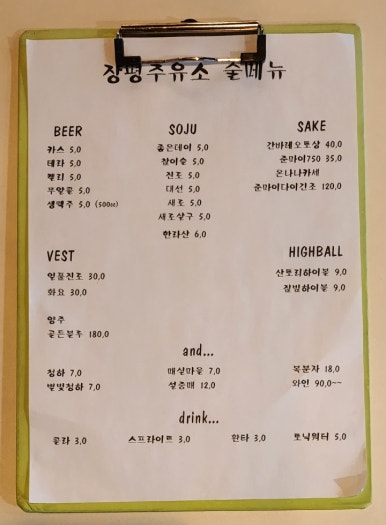 장평주유소 술메뉴
BEER
카스 5,0
테라 5,0
켈리 5,0
무알콜 5,0
생맥주 5,0 (500cc)
SOJU
좋은데이 5,0
참이슬 5,0
진로 5,0
대선 5,0
새로 5,0
새로살구 5,0
한라산 6,0
SAKE
간바레오또상 40,0
준마이750 35,0
온나나카세
준마이다이긴조 120,0
VEST
일품진로 30,0
화요 30,0
양주
골든블루 180,0
HIGHBALL
산토리하이볼 9,0
짐빔하이볼 9,0
and...
청하 7,0
별빛청하 7,0
매실마을 7,0
설중매 12,0
복분자 18,0
와인 90,0~~
drink...
콜라 3,0
스프라이트 3,0
환타 3,0
토닉워터 5,0